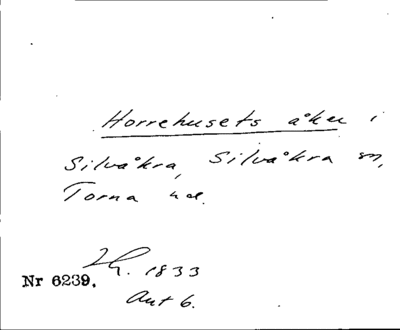 Horrehusets åker i
Silvåkra, Silvåkra sn,
Torna hd.
1833
Nr 6239.
Akt 6.